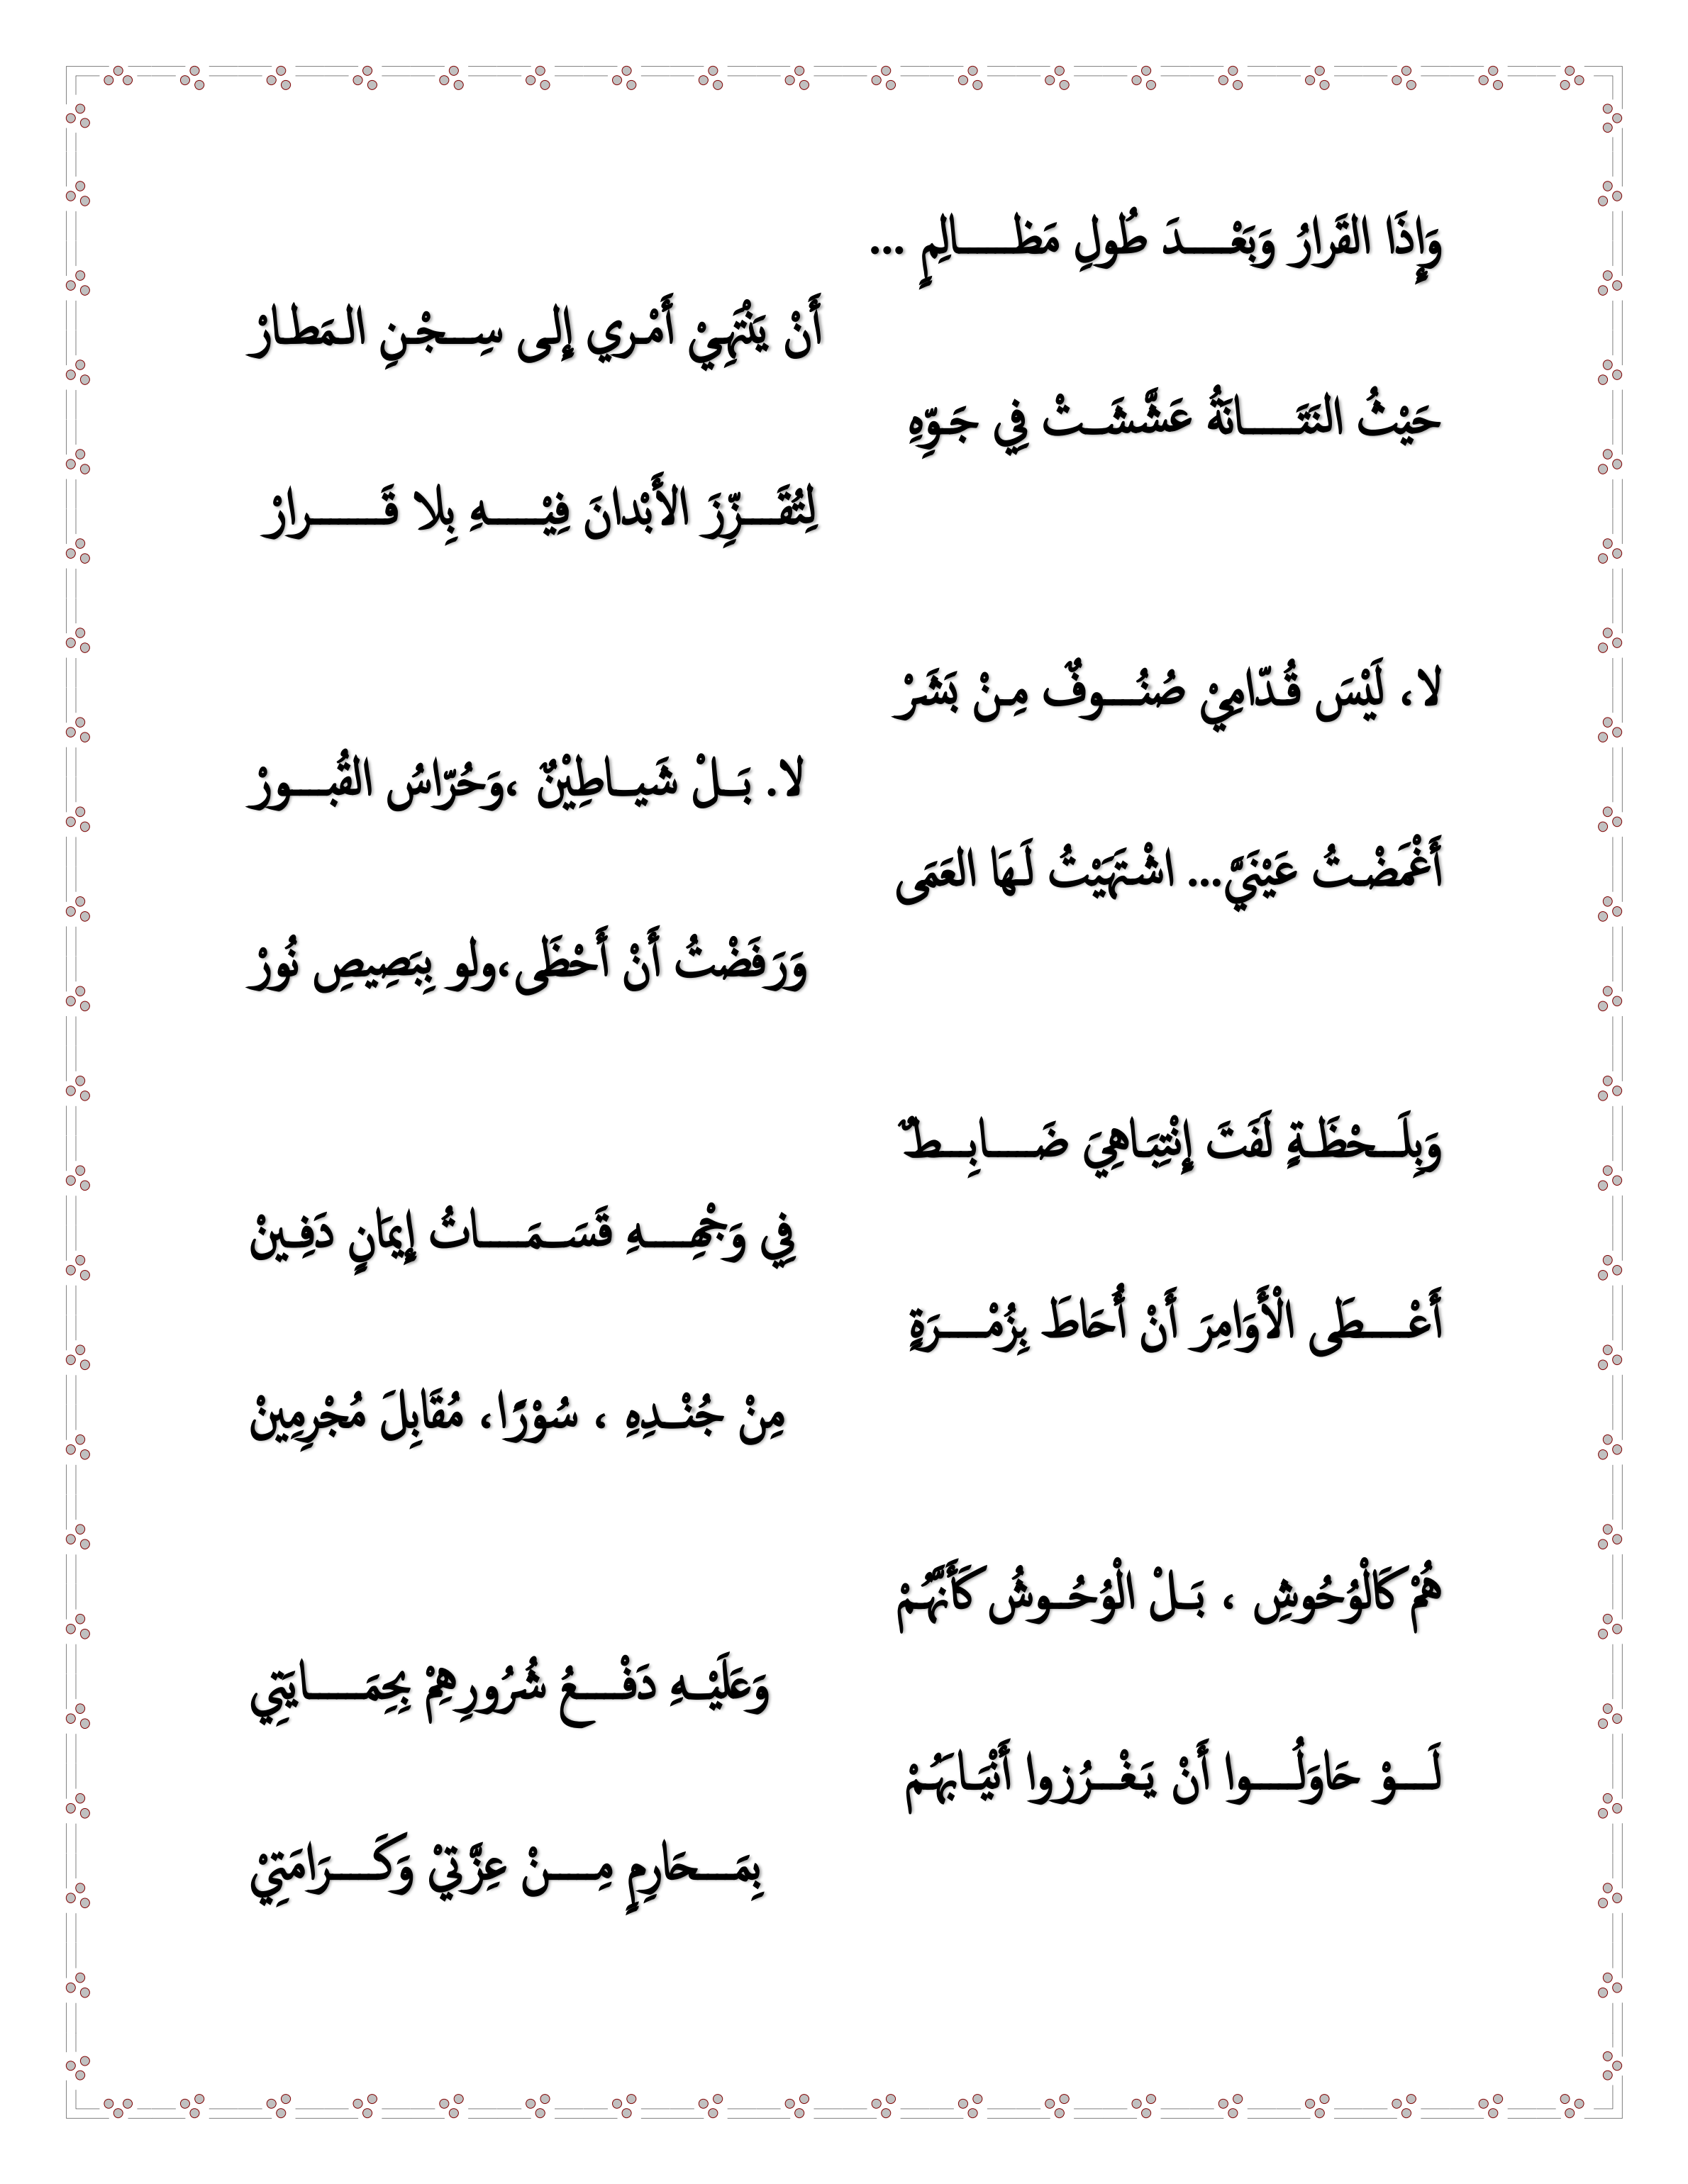 وَإِذَا القَرارُ وَبَعْـــدَ طُولِ مَظـــــالِمٍ ...
أَنْ يَنْتَهِيْ أَمْري إِلى سِـــجْـنِ الـمَطـارْ
حَيْثُ النَتَـــــانَةُ عَشَّشَــتْ فِي جَـوِّهِ
لِتُقَـــزِّزَ الأَبْدانَ فِيْـــــهِ بِلا قَــــــــرارْ
لا، لَيْسَ قُـدّامِيْ صُنُـــوفٌ مِـنْ بَشَرْ
لا. بَــلْ شَيــاطِيْنٌ ،وَحُرّاسُ القُبـــورْ
أَغْمَضْـتُ عَيْنَيَّ... اشْـتَهَيْتُ لَـهَا العَمَى
وَرَفَضْتُ أَنْ أَحْظَى،ولو بِبَصِيصِ نُورْ
وَبِلَـــحْظَـةٍ لَفَتَ إِنْتِبَـاهِيَ ضَــــابِــطٌ
فِي وَجْهِــــهِ قَسَــمَــــاتُ إِيمَانٍ دَفِـينْ
أَعْــــطَى الْأَوَامِرَ أَنْ أُحَاطَ بِزُمْــــرَةٍ
مِنْ جُنْــدِهِ ، سُوْرًَا، مُقَابِلَ مُجْرِمِينْ
هُمْ كَالْوُحُوشِ ، بَــلْ الْوُحُــوشُ كَأَنَّهُـمْ
وَعَلَيْــهِ دَفْــــعُ شُرُورِهِمْ بِحِمَـــــايَتِي
لَـــوْ حَاوَلُــــوا أَنْ يَـغْــرُزوا أَنْيَـابَهُـمْ
بِمَـــحَارِمٍ مِــــنْ عِزَّتيْ وَكَــــرَامَتِيْ